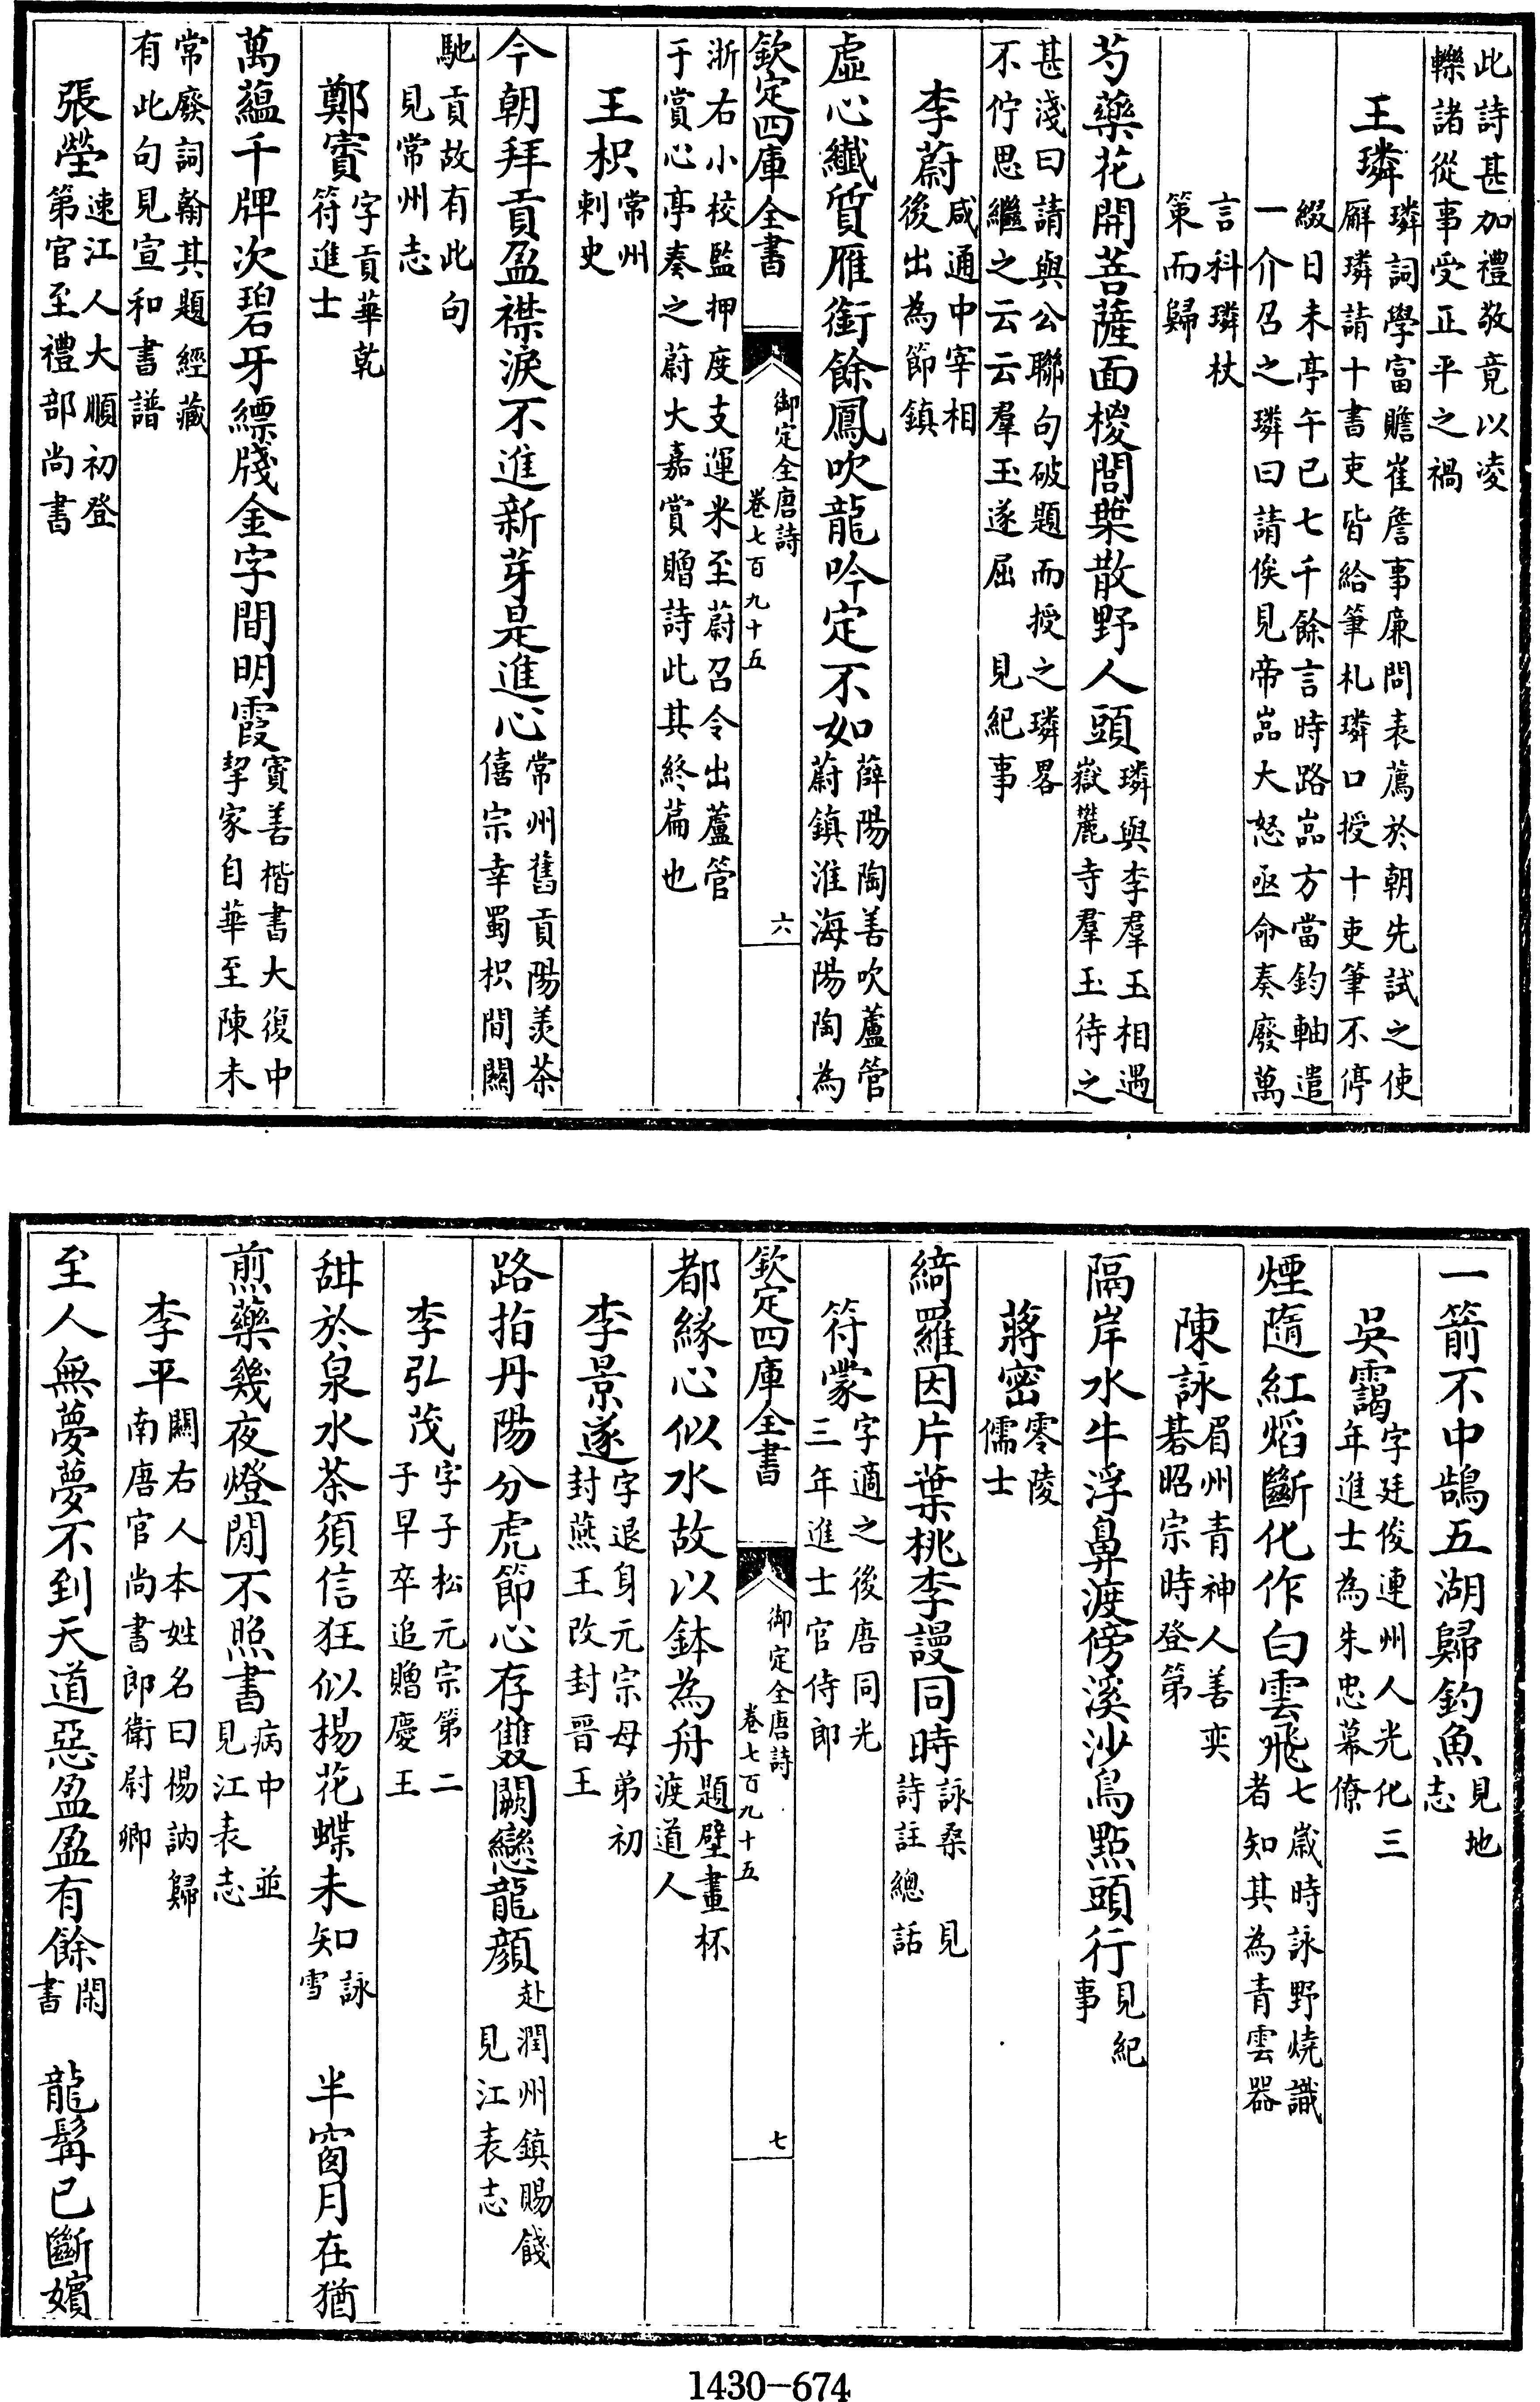 此詩甚加禮敬竟以凌
轢諸從事受正平之禍
王璘璘詞學富贍崔詹事廉問表薦於朝先試之使
廨璘請十書吏皆給筆札璘口授十吏筆不停
綴日未亭午已七千餘言時路喦方當鈞軸遣
一介召之璘曰請俟見帝喦大怒亟命奏廢萬
言科璘杖
策而歸
芍藥花開菩薩面椶閭葉散野人頭璘與李羣玉相遇
嶽麓寺羣玉待之
甚淺曰請與公聯句破題而授之璘畧
不佇思繼之云云羣玉遂屈 見紀事
李蔚咸通中宰相
後出為節鎮
虛心纖質雁銜餘鳳吹龍吟定不如薛陽陶善吹蘆管
蔚鎮淮海陽陶為
欽定四庫全書 御定全唐詩 卷七百九十五 六
浙右小校監押度支運米至蔚召令出蘆管
于賞心亭奏之蔚大嘉賞贈詩此其終篇也
王枳常州
刺史
今朝拜貢盈襟淚不進新芽是進心常州舊貢陽羨茶
僖宗幸蜀枳間關
馳貢故有此句
見常州志
鄭賨字貢華乾
符進士
萬蘊千牌次碧牙縹牋金字間明霞賨善楷書大復中
挈家自華至陳未
常廢詞翰其題經藏
有此句見宣和書譜
張瑩速江人大順初登
第官至禮部尚書
一箭不中鵠五湖歸釣魚見地
志
吳靄字廷俊連州人光化三
年進士為朱忠幕僚
煙隨紅熖斷化作白雲飛七歲時詠野燒識
者知其為青雲器
陳詠眉州青神人善奕
碁昭宗時登第
隔岸水牛浮鼻渡傍溪沙鳥點頭行見紀
事
蔣密零陵
儒士
綺羅因片葉桃李謾同時詠桑 見
詩註總話
符蒙字適之後唐同光
三年進士官侍郎
欽定四庫全書 御定全唐詩 卷七百九十五 七
都緣心似水故以鉢為舟題壁畫杯
渡道人
李景遂字退身元宗母弟初
封燕王改封晉王
路指丹陽分虎節心存雙闕戀龍顏赴潤州鎮賜餞
見江表志
李弘茂字子松元宗第二
子早卒追贈慶王
甜於泉水茶須信狂似楊花蝶未知詠
雪 半窗月在猶
煎藥幾夜燈閒不照書病中 並
見江表志
李平關右人本姓名曰楊訥歸
南唐官尚書郎衛尉卿
至人無夢夢不到天道惡盈盈有餘閑
書 龍髯已斷嬪
1430-674